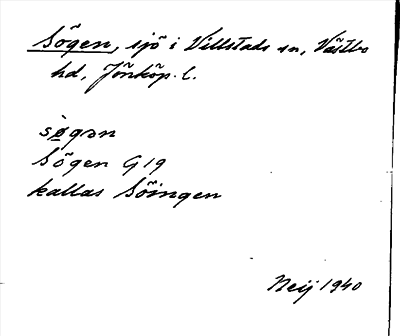 Sögen, sjö i Villstads sn, Västbo
hd, Jönköp. l.
søgən
Sögen G 19
kallas Söingen
Neij 1940